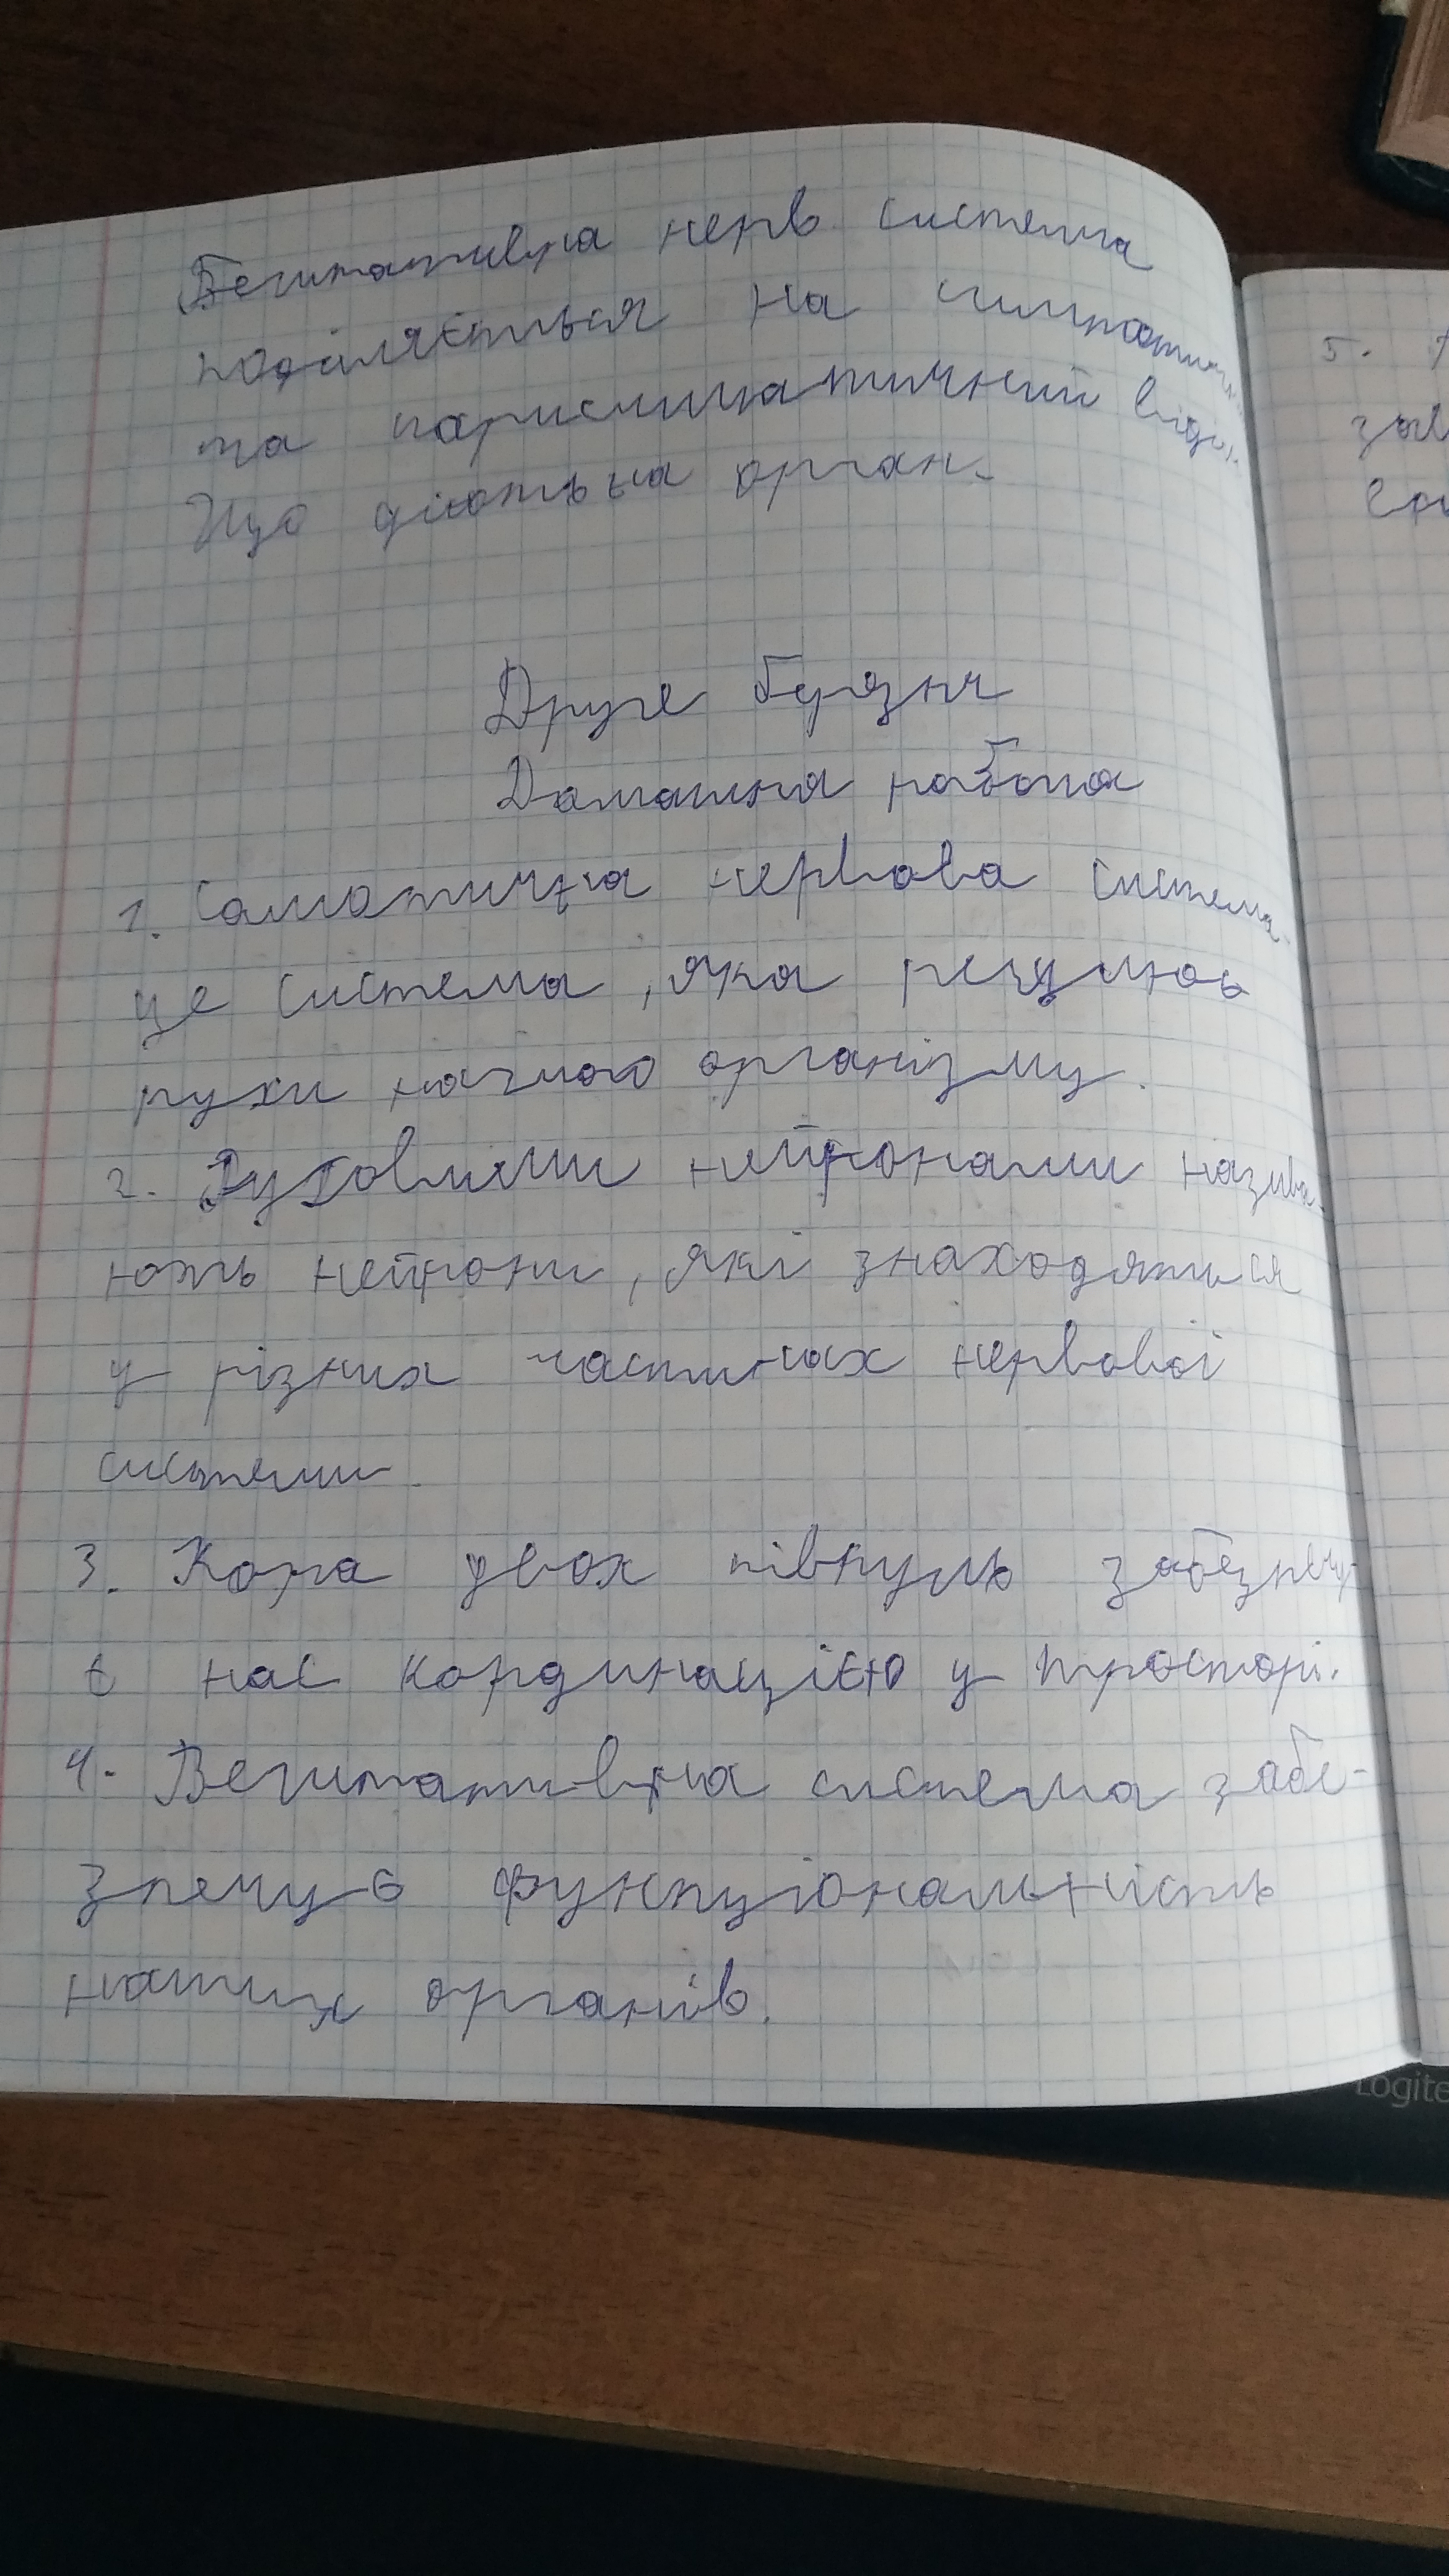 Вегитативна нерв. система
поділяється на симпатичн
та парисимпатичний відділ.
Що діють на орган.
Друге березня
Домашня робота
1. Соматична нервова система
це система, яка регулює
рухи нашого організму.
2. Руховими нейронами назива-
ють нейрони, які знаходяться
у різних частинах нервової
системи.
3. Кора двох півкуль забезпечу-
є нас кординацією у просторі.
4. Вегитативна система забе-
зпечує функціональність
наших органів.
5.
Logite